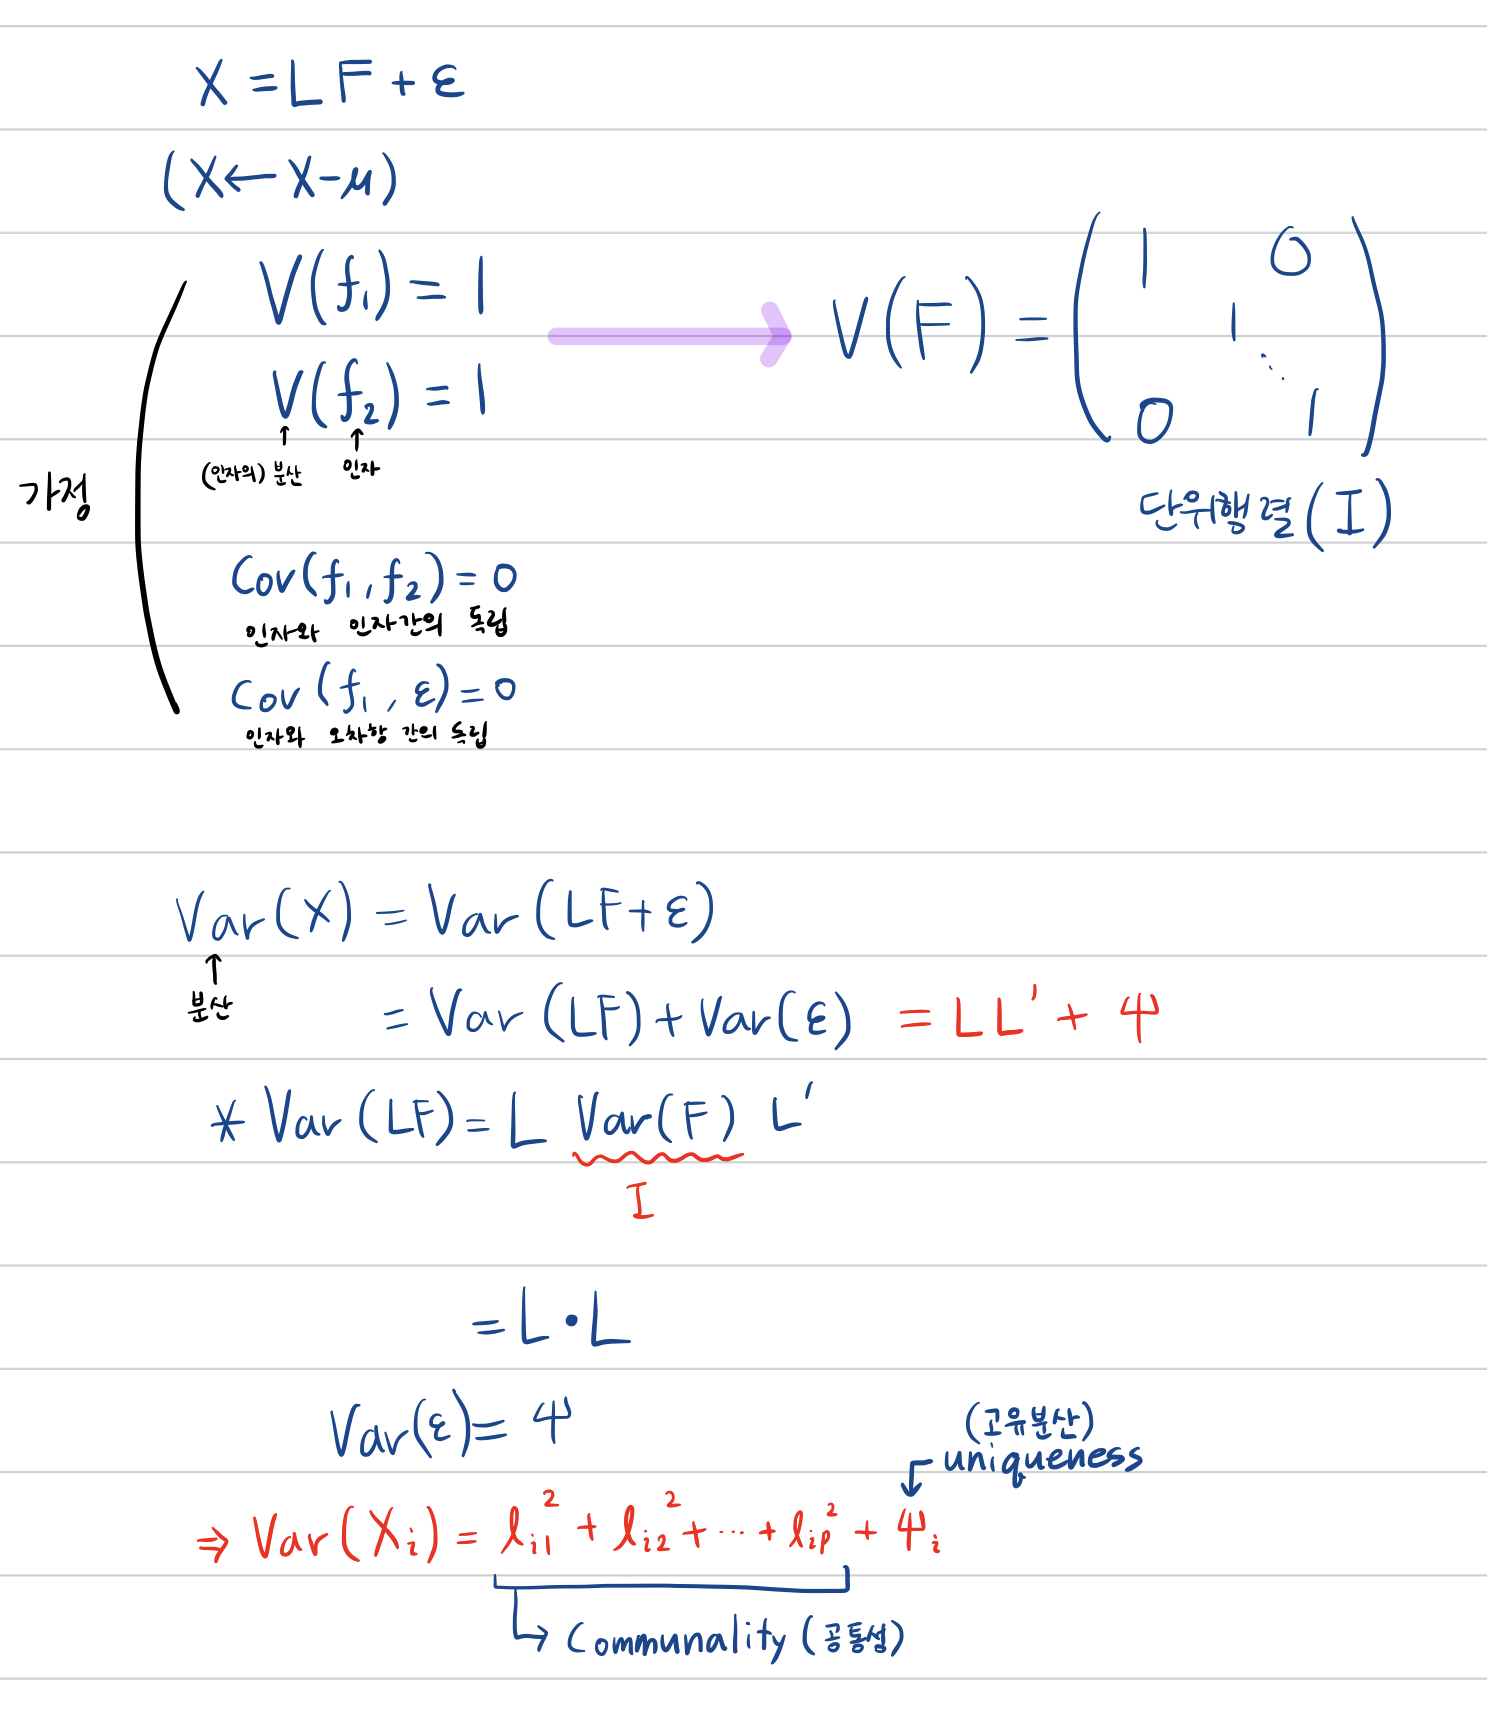 X = LF + ε
(X ← X-μ)
V(f₁) = 1
V(f₂) = 1
(인자의) 분산 인자
가정
Cov(f₁, f₂) = 0
인자와 인자간의 독립
Cov(f₁, ε) = 0
인자와 오차항 간의 독립
V(F) = ( 1 0
1
⋱
0 1 )
단위행렬(I)
Var(X) = Var(LF+ε)
분산
= Var(LF) + Var(ε) = LL' + Ψ
* Var(LF) = L Var(F) L'
I
= L·L
Var(ε) = Ψ
(고유분산)
uniqueness
⇒ Var(Xᵢ) = ℓᵢ₁² + ℓᵢ₂² + ⋯ + ℓᵢₚ² + Ψᵢ
Communality (공통성)